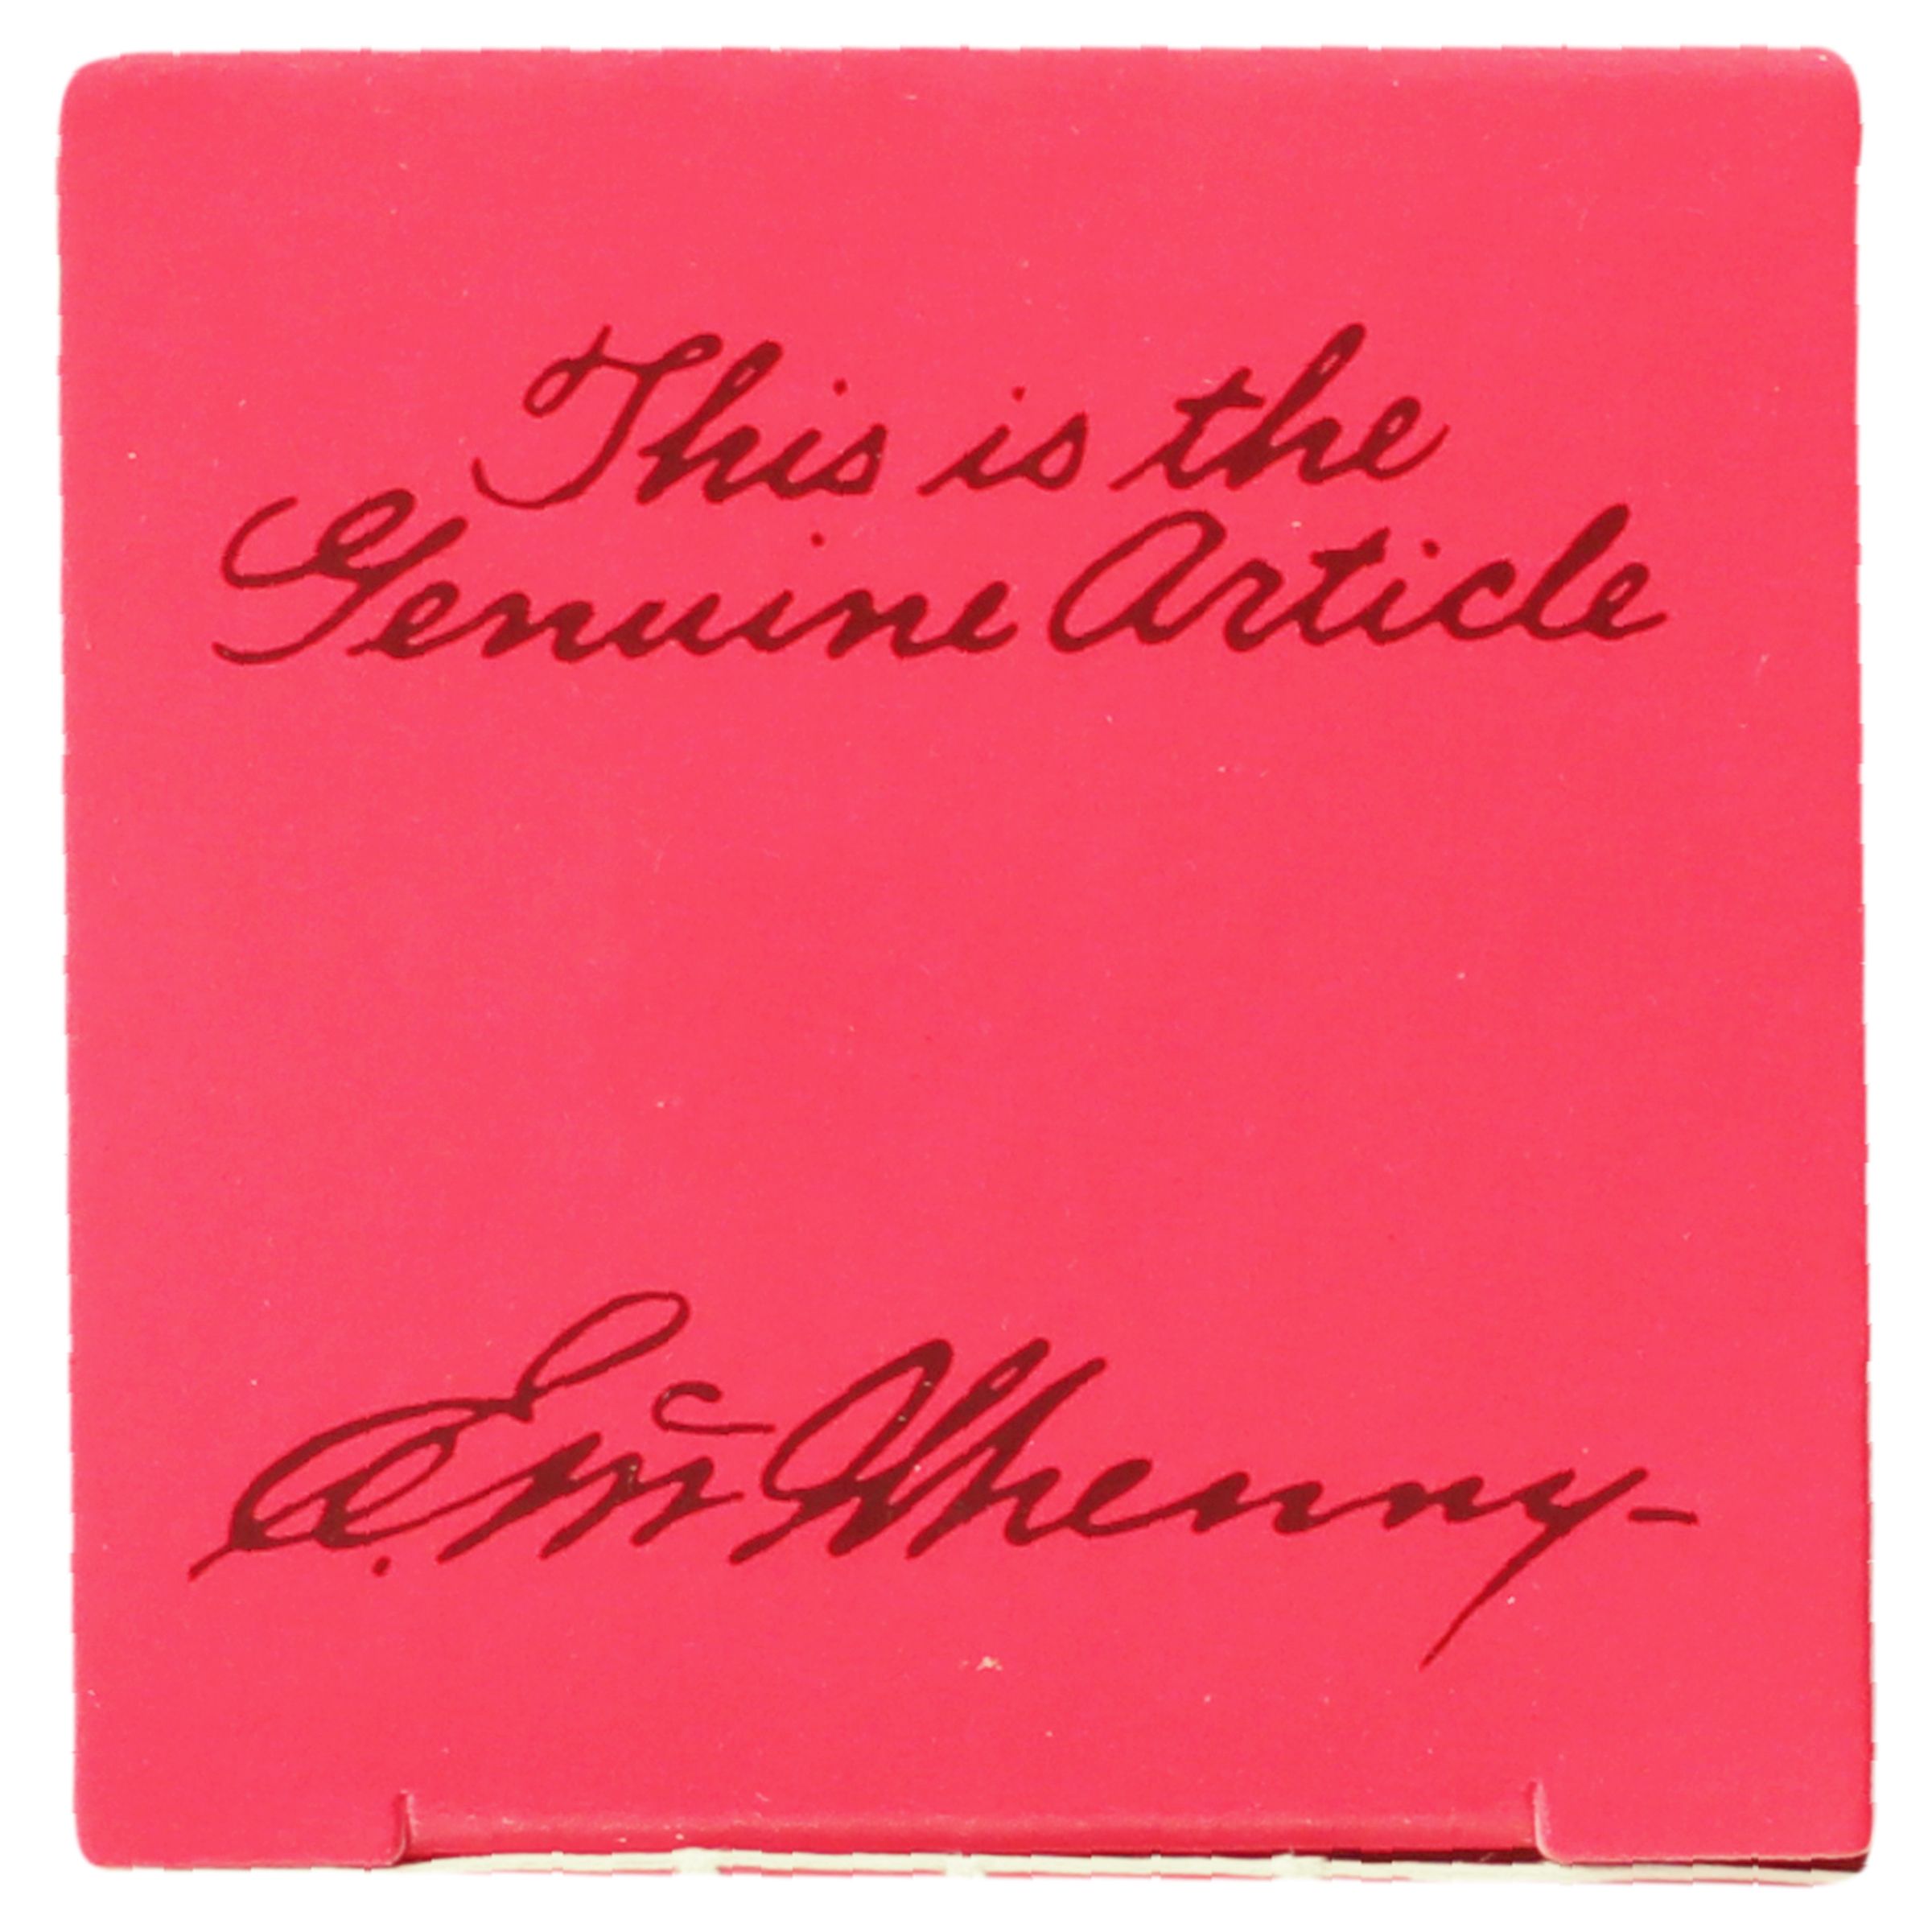 This is the
Genuine Article
E. McIlhenny-